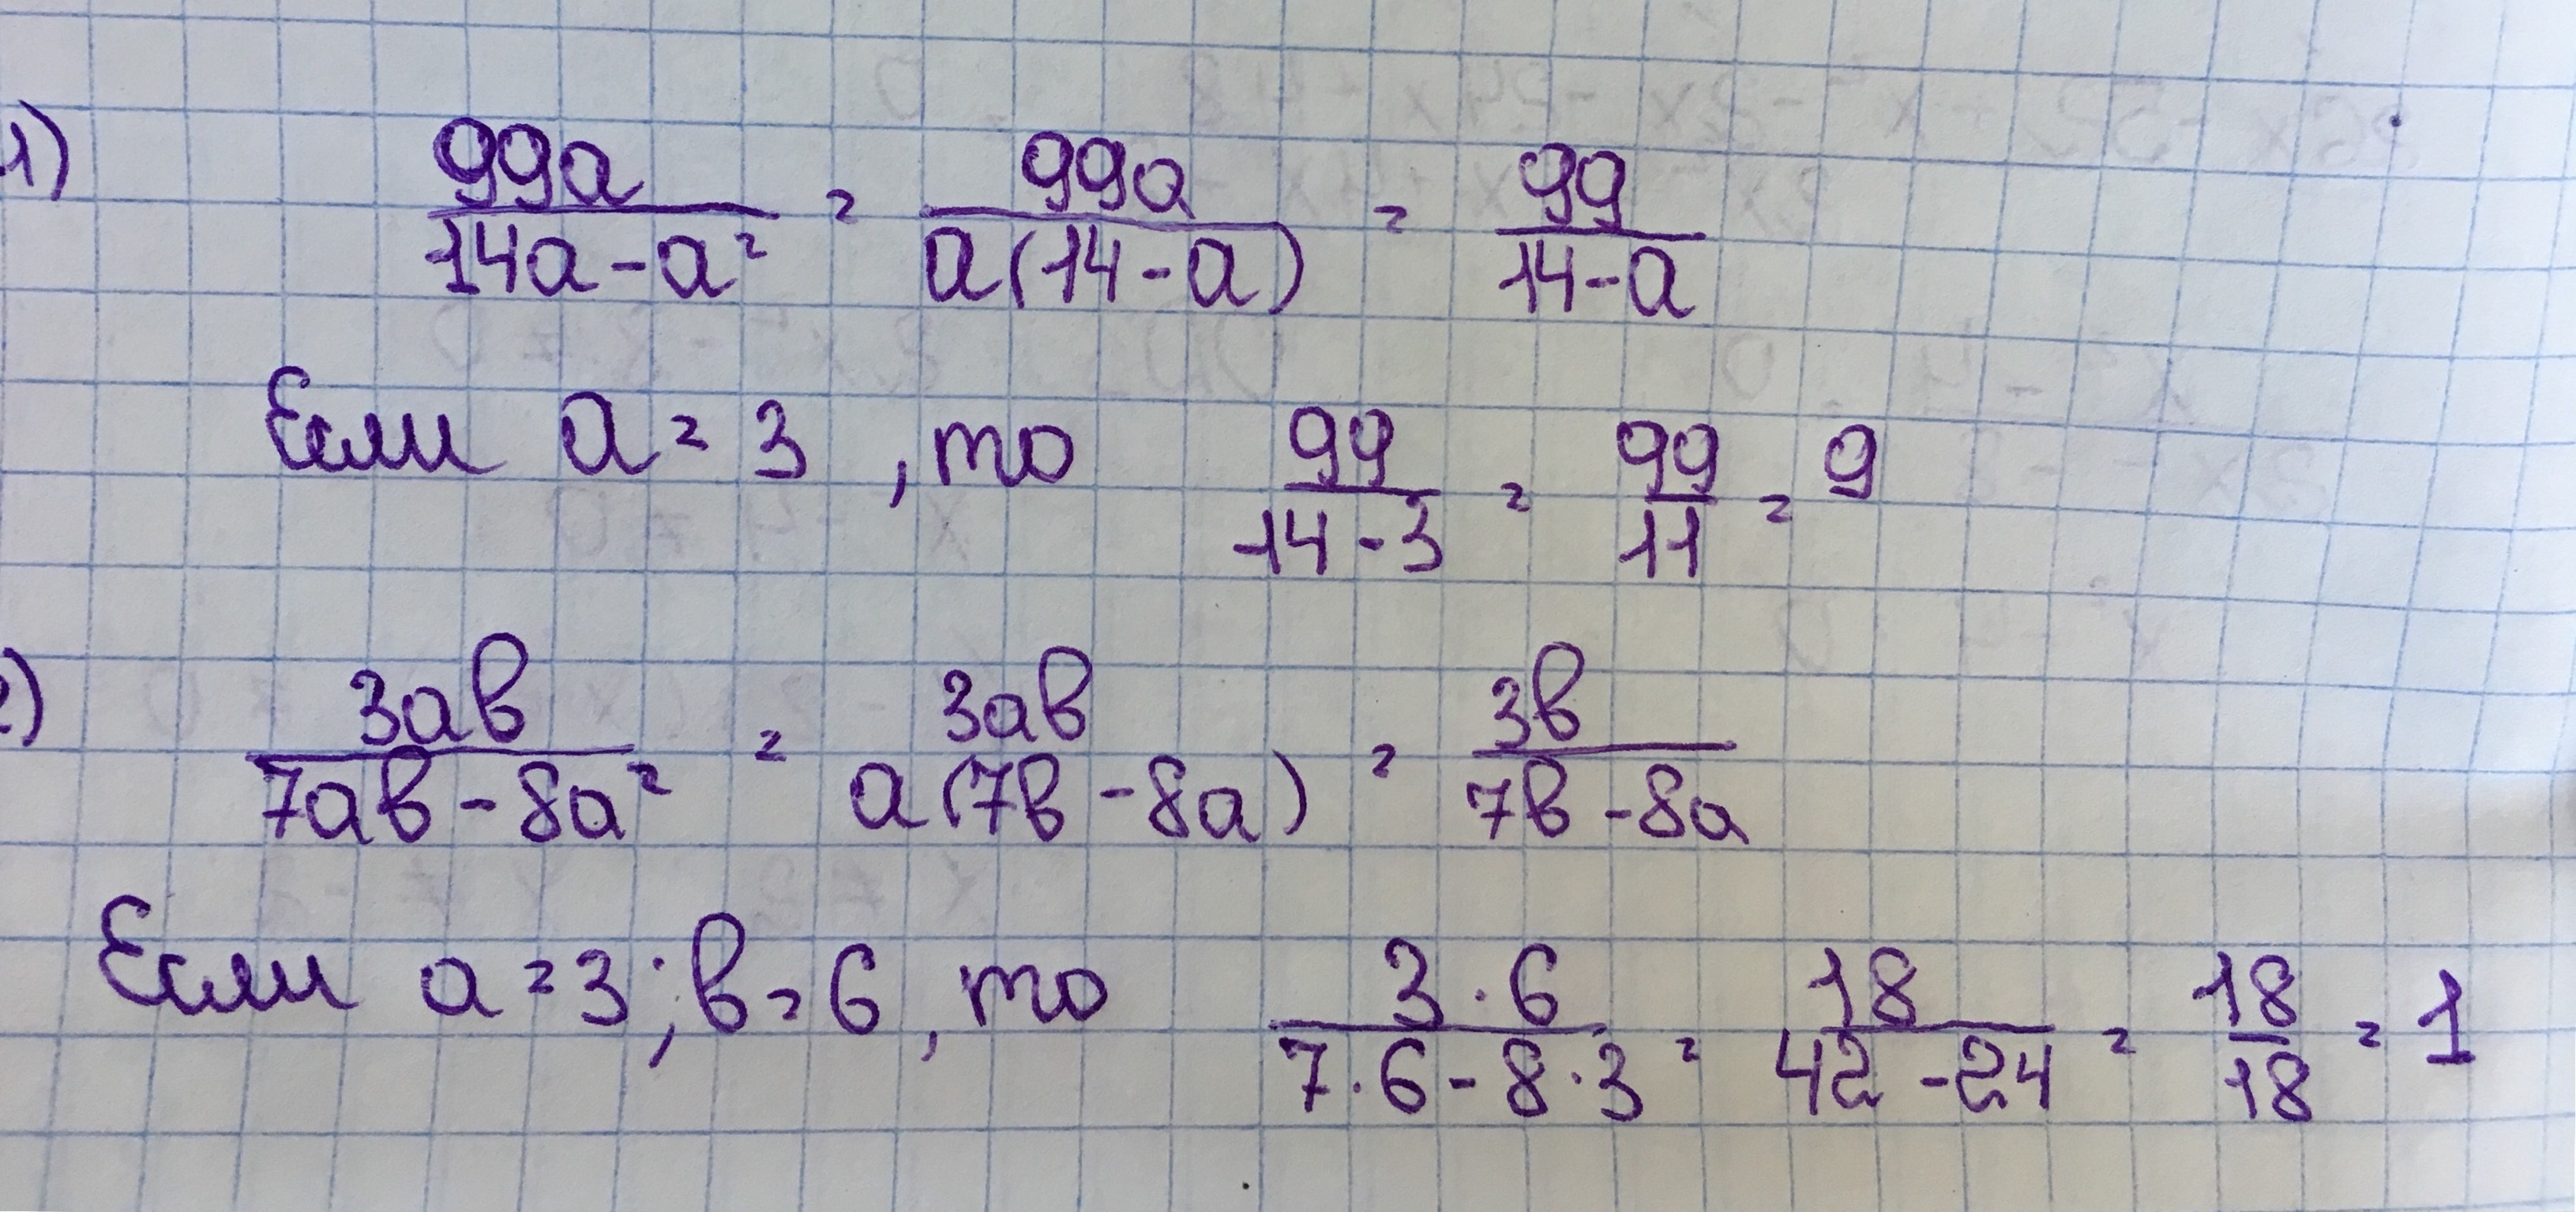 1) 99a/(14a-a²) = 99a/(a(14-a)) = 99/(14-a)
Если a=3, то 99/(14-3) = 99/11 = 9
) 3ab/(7ab-8a²) = 3ab/(a(7b-8a)) = 3b/(7b-8a)
Если a=3; b=6, то (3·6)/(7·6-8·3) = 18/(42-24) = 18/18 = 1